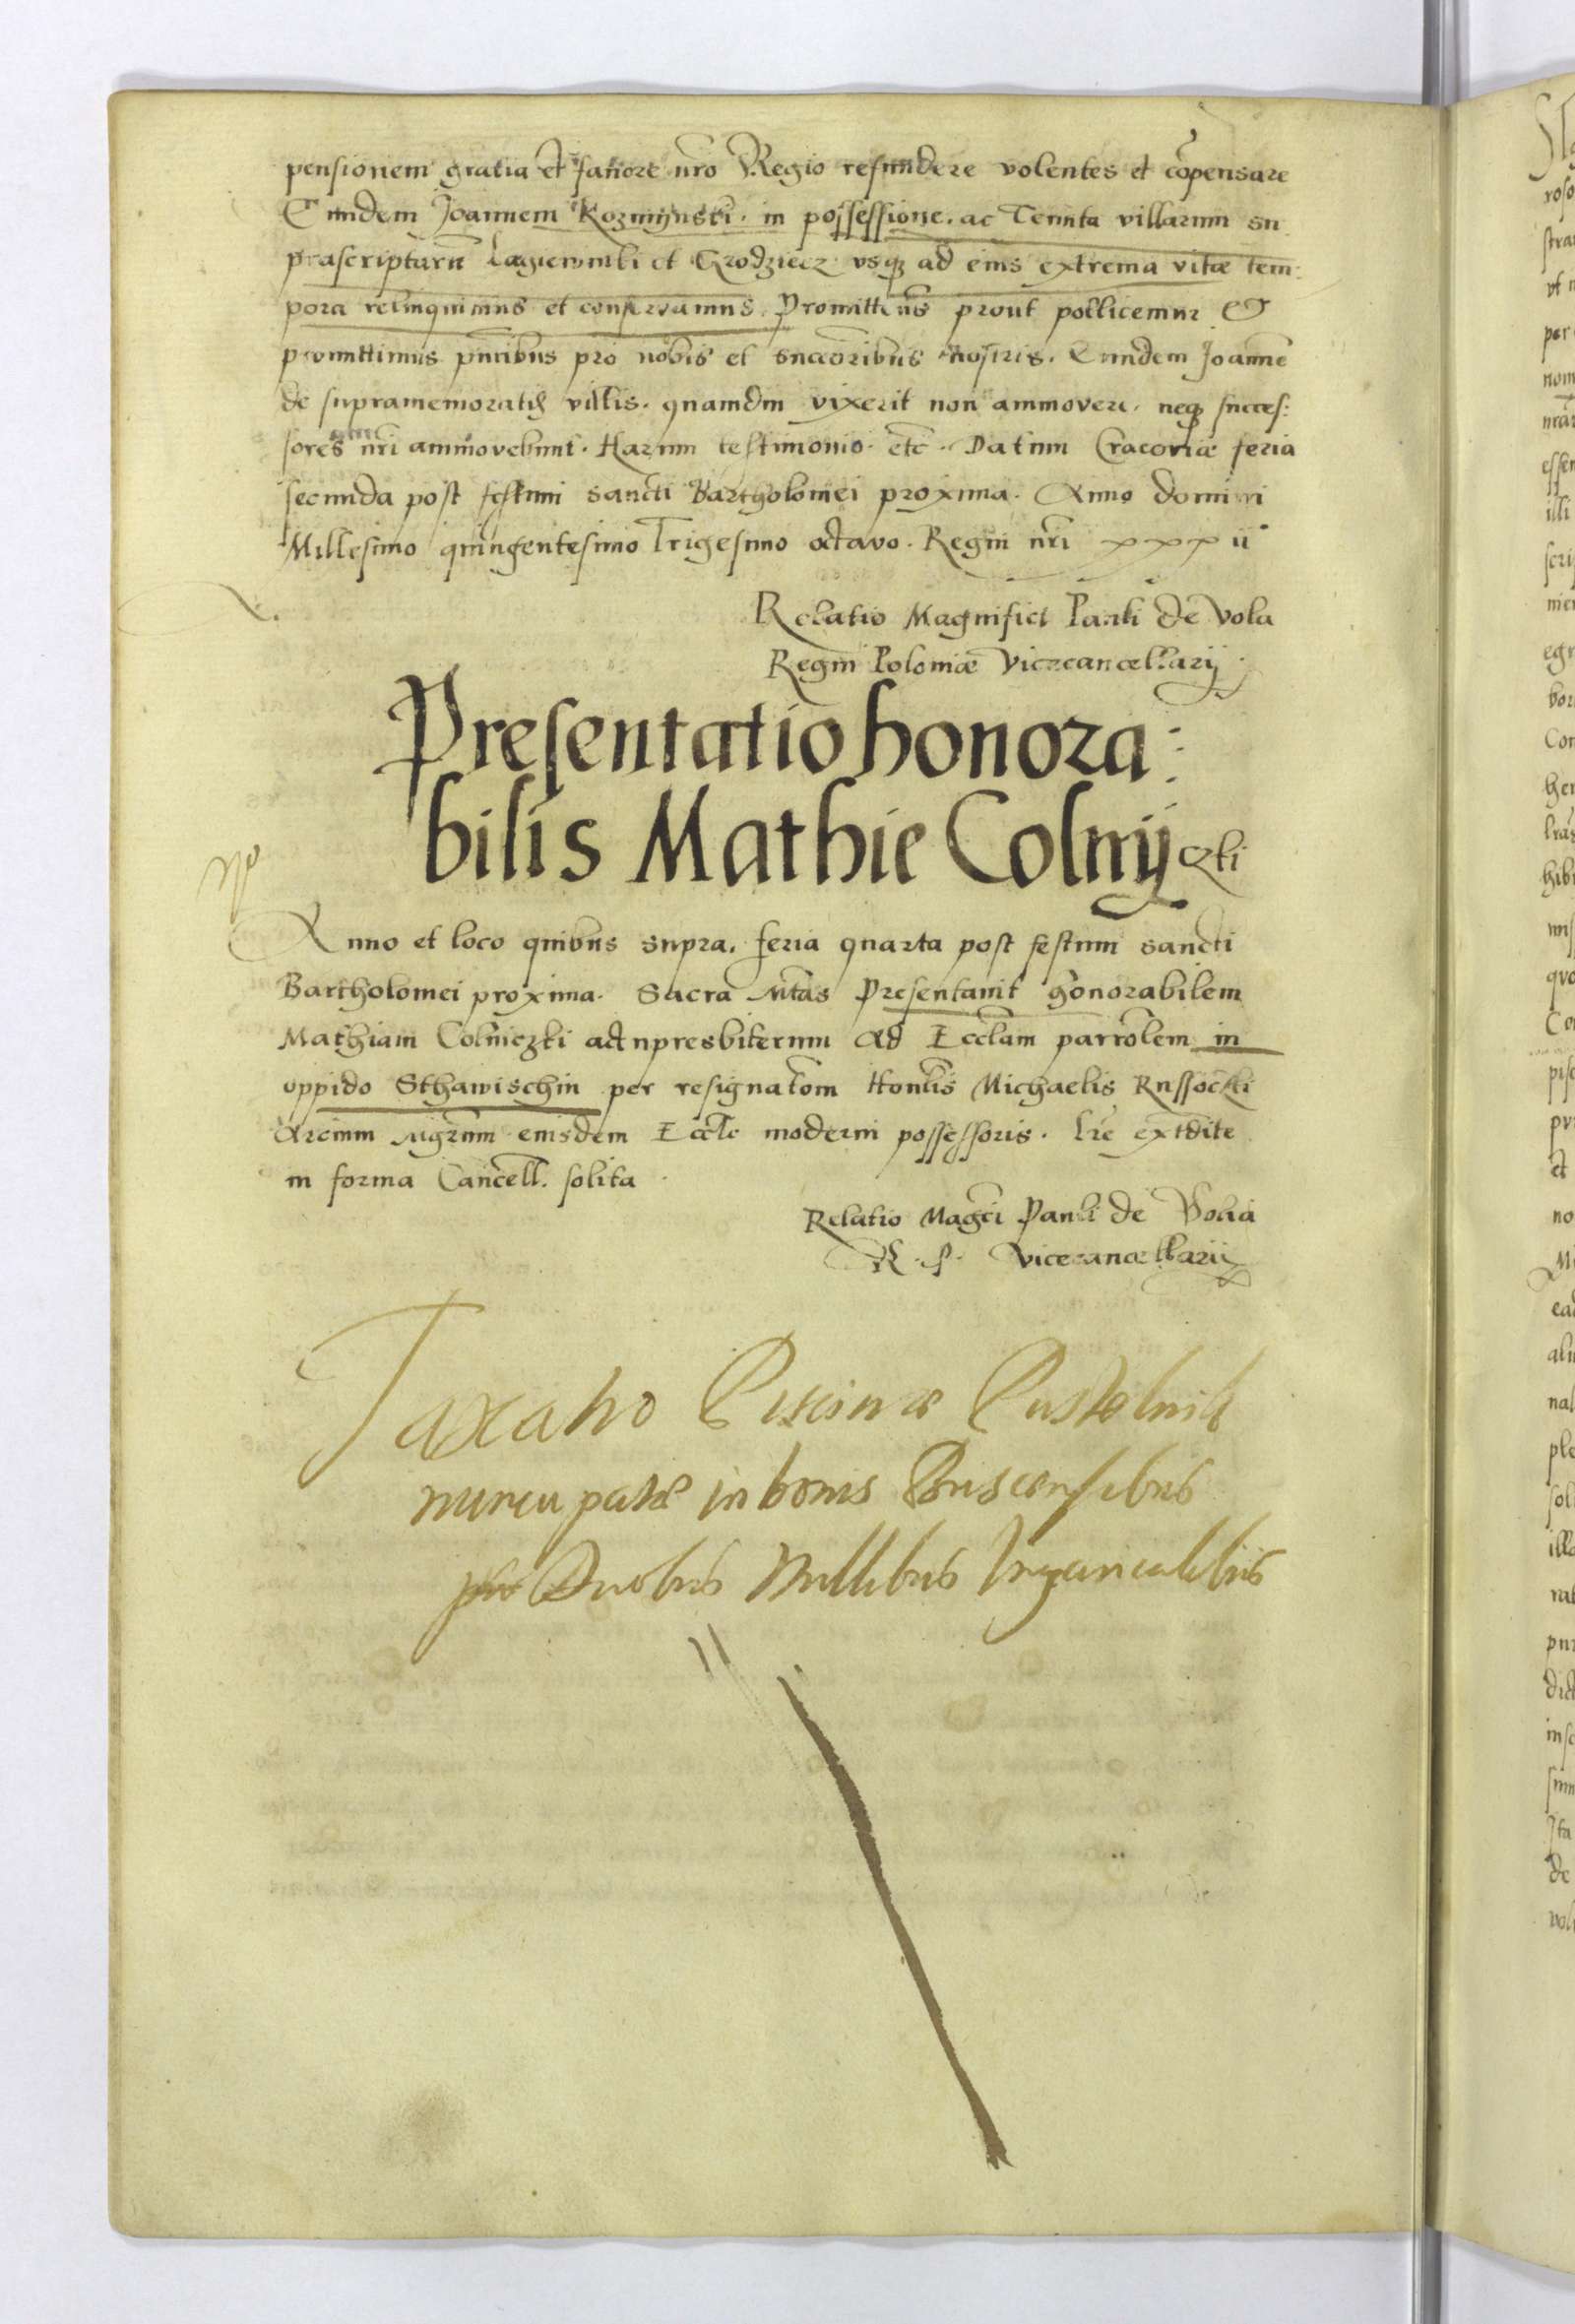 pensionem gratia et favore nr̃o Regio refundere volentes et cõpensare
Eundem Joannem Kozmÿnski. in possessione. ac Tenuta villarum su
prascripturũ Lagiewniki et Grodziecz vsqȝ ad eius extrema vitæ tem:
pora relinquimus et conservamus. Promitten̄s prout pollicemur &
promittimus pñtibus pro nobis et succõribus nostris. Eundem Joannẽ
de supramemoratis villis. quamdiu vixerit non ammovere. neqȝ succes:
sores nr̃i ammovebunt. Harum testimonio. etc̃. Datum Cracoviæ feria
secunda post festum sancti Bartholomei proxima. Anno domini
Millesimo quingentesimo Trigesimo octavo. Regni nr̃i xxxii
Relatio Magnifici Pauli de Vola
Regni Poloniæ Vicecancellarij.
Presentatio honora:
bilis Mathie Colnijczki
Anno et loco quibus supra. feria quarta post festum sancti
Bartholomei proxima. Sacra Mt̃as Presentavit honorabilem
Mathiam Colniczki altupresbiterum Ad Eccl̃am parrõlem in
oppido Sthawischin per resignatõm Honl̃is Michaelis Russocki
Arcium Mgrũm eiusdem Eccl̃e moderni possessoris. Lr̃e extradite
in forma Cancell. solita.
Relatio Magc̃i Pauli de Volia
R. P. Vicecancellarii
Taxatio Piscinæ Pustelnik
nuncupatæ in bonis
pro Duobus Millibus